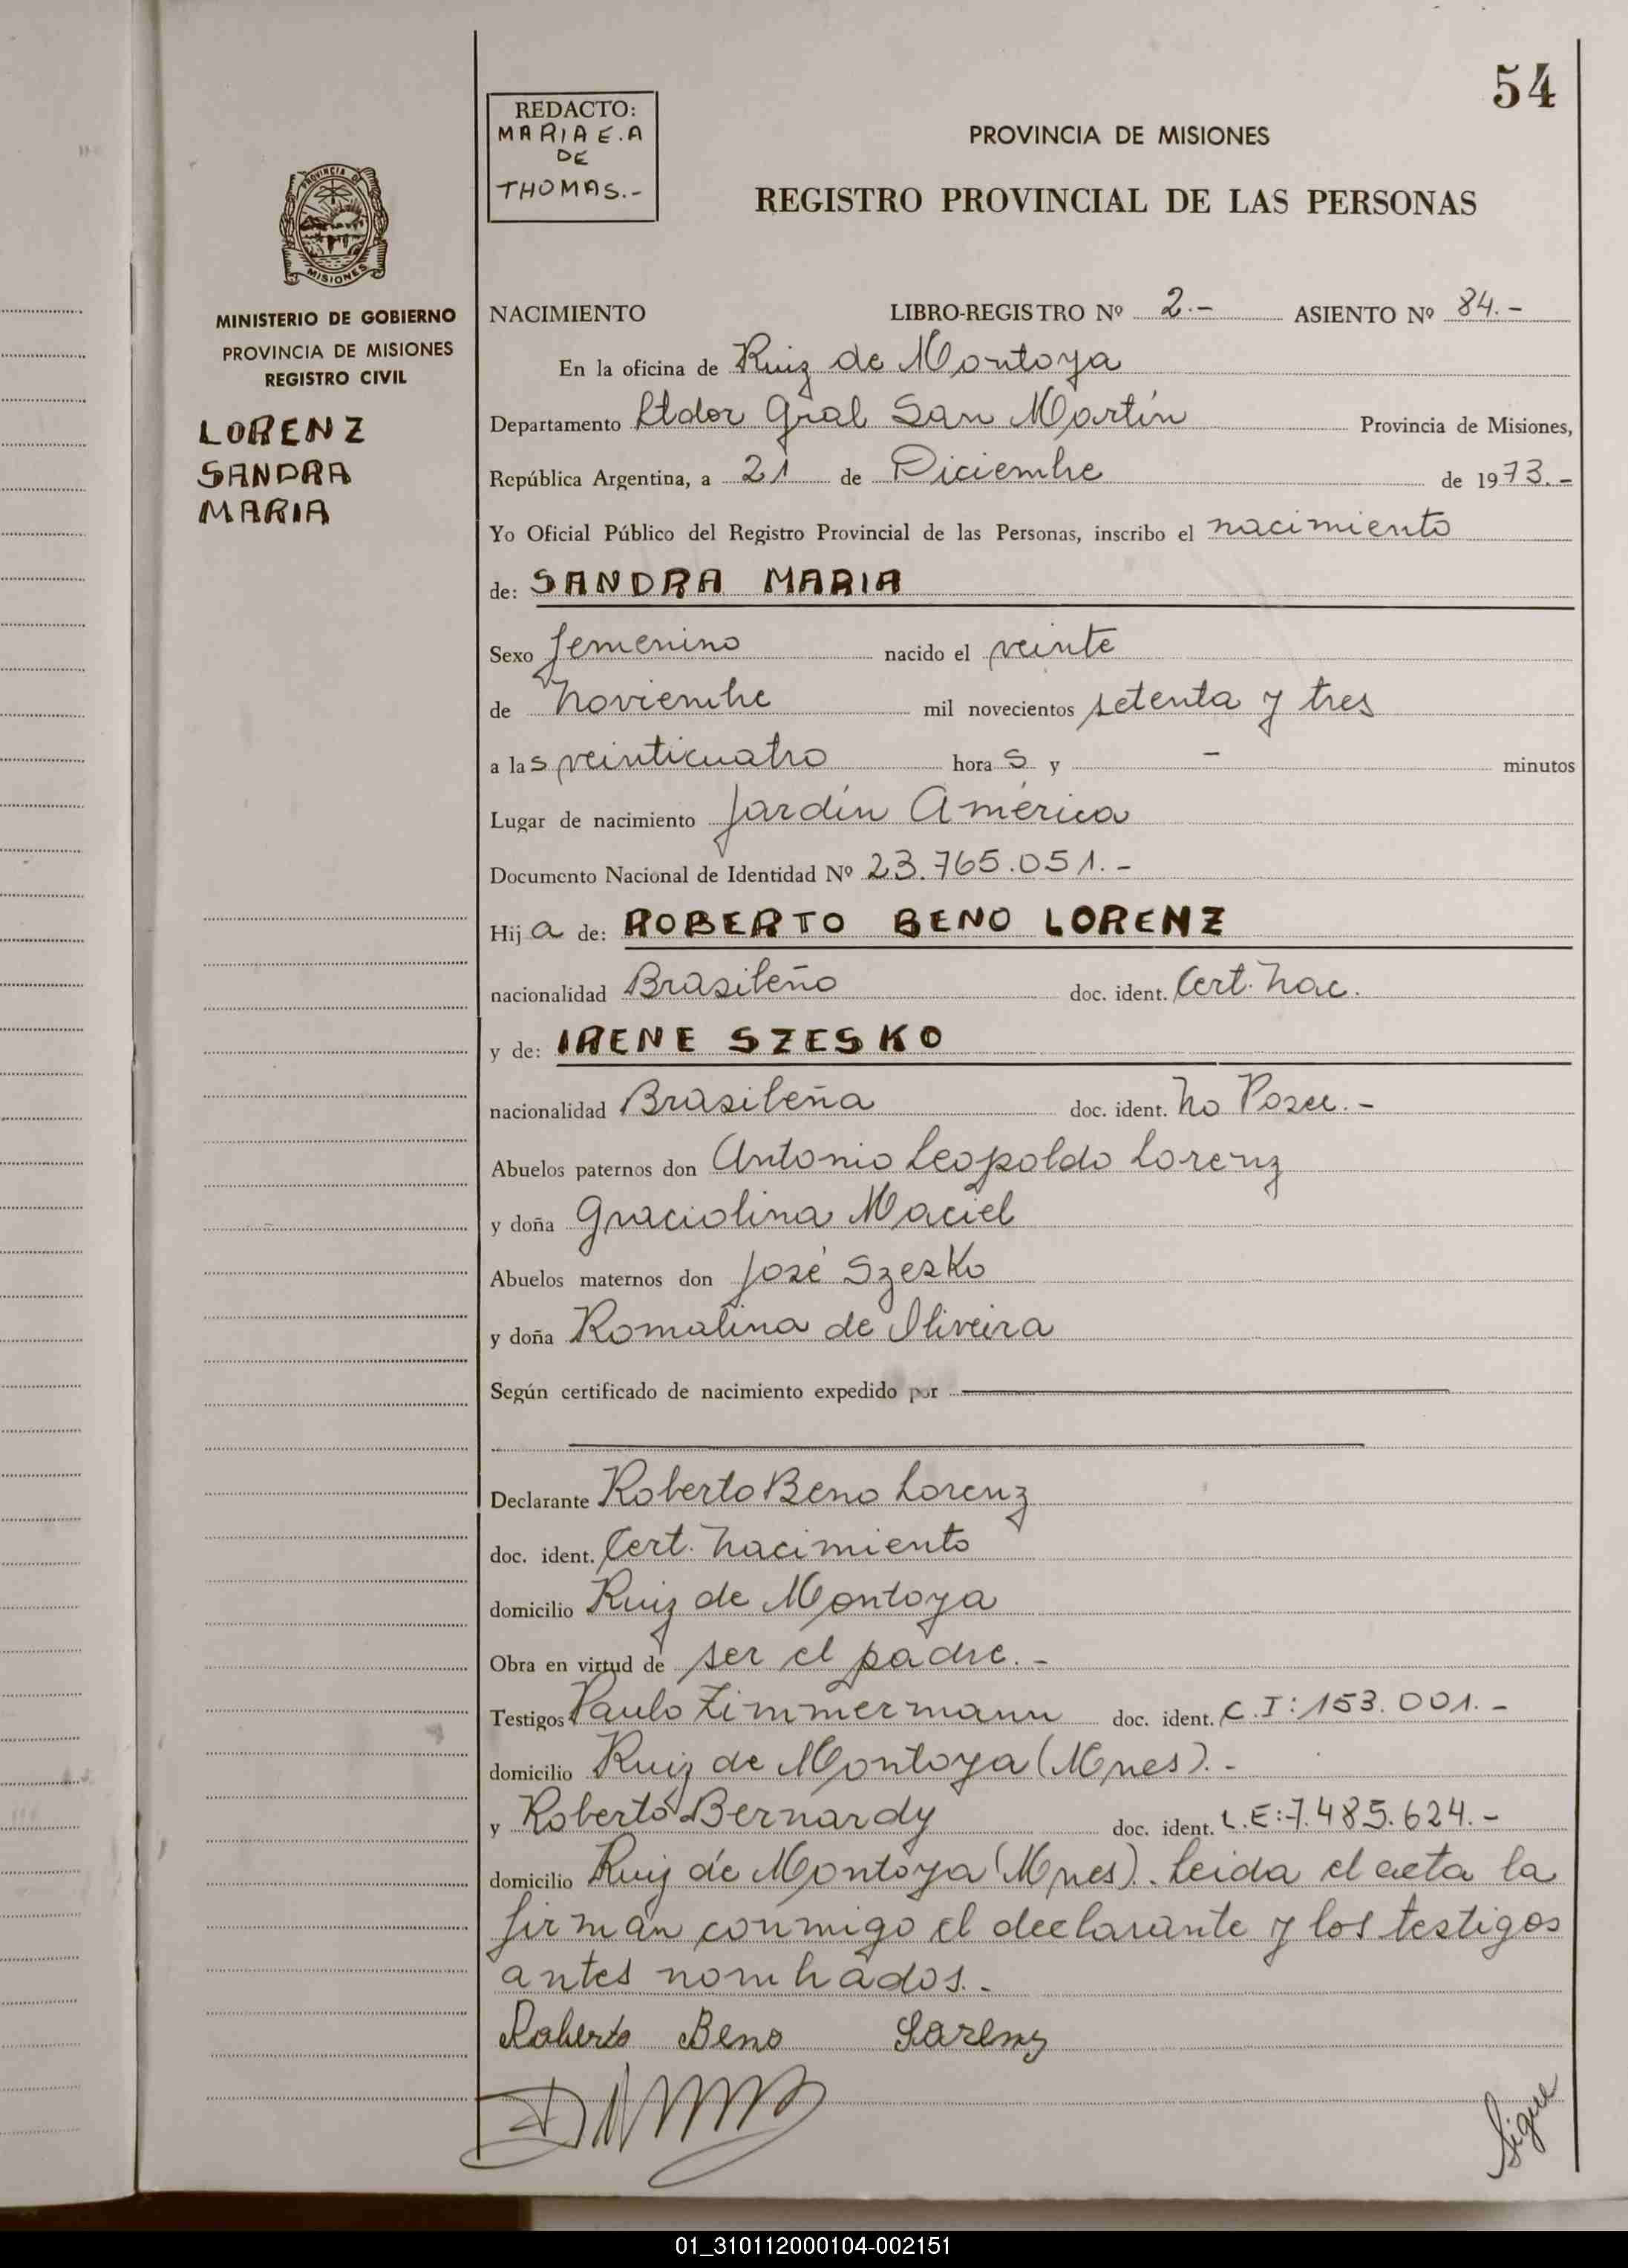 54
REDACTO:
MARIA E. A
DE
THOMAS.-
PROVINCIA DE MISIONES
REGISTRO PROVINCIAL DE LAS PERSONAS
PROVINCIA DE
MISIONES
MINISTERIO DE GOBIERNO
PROVINCIA DE MISIONES
REGISTRO CIVIL
LORENZ
SANDRA
MARIA
NACIMIENTO LIBRO-REGISTRO Nº 2.- ASIENTO Nº 84.-
En la oficina de Ruiz de Montoya
Departamento Ltdor Gral San Martín Provincia de Misiones,
República Argentina, a 21 de Diciembre de 1973.-
Yo Oficial Público del Registro Provincial de las Personas, inscribo el nacimiento
de: SANDRA MARIA
Sexo femenino nacido el veinte
de Noviembre mil novecientos setenta y tres
a las veinticuatro horas y - minutos
Lugar de nacimiento Jardín América
Documento Nacional de Identidad Nº 23.765.051.-
Hija de: ROBERTO BENO LORENZ
nacionalidad Brasileño doc. ident. Cert. Nac.
y de: IRENE SZESKO
nacionalidad Brasileña doc. ident. No Posee.-
Abuelos paternos don Antonio Leopoldo Lorenz
y doña Graciolina Maciel
Abuelos maternos don José Szesko
y doña Romalina de Oliveira
Según certificado de nacimiento expedido por
Declarante Roberto Beno Lorenz
doc. ident. Cert. Nacimiento
domicilio Ruiz de Montoya
Obra en virtud de ser el padre.-
Testigos Paulo Zimmermann doc. ident. C.I: 153.001.-
domicilio Ruiz de Montoya (Mnes).-
y Roberto Bernardy doc. ident. L.E: 7.485.624.-
domicilio Ruiz de Montoya (Mnes). Leida el acta la
firman conmigo el declarante y los testigos
antes nombrados.-
Roberto Beno Lorenz
Sigue
01_310112000104-002151